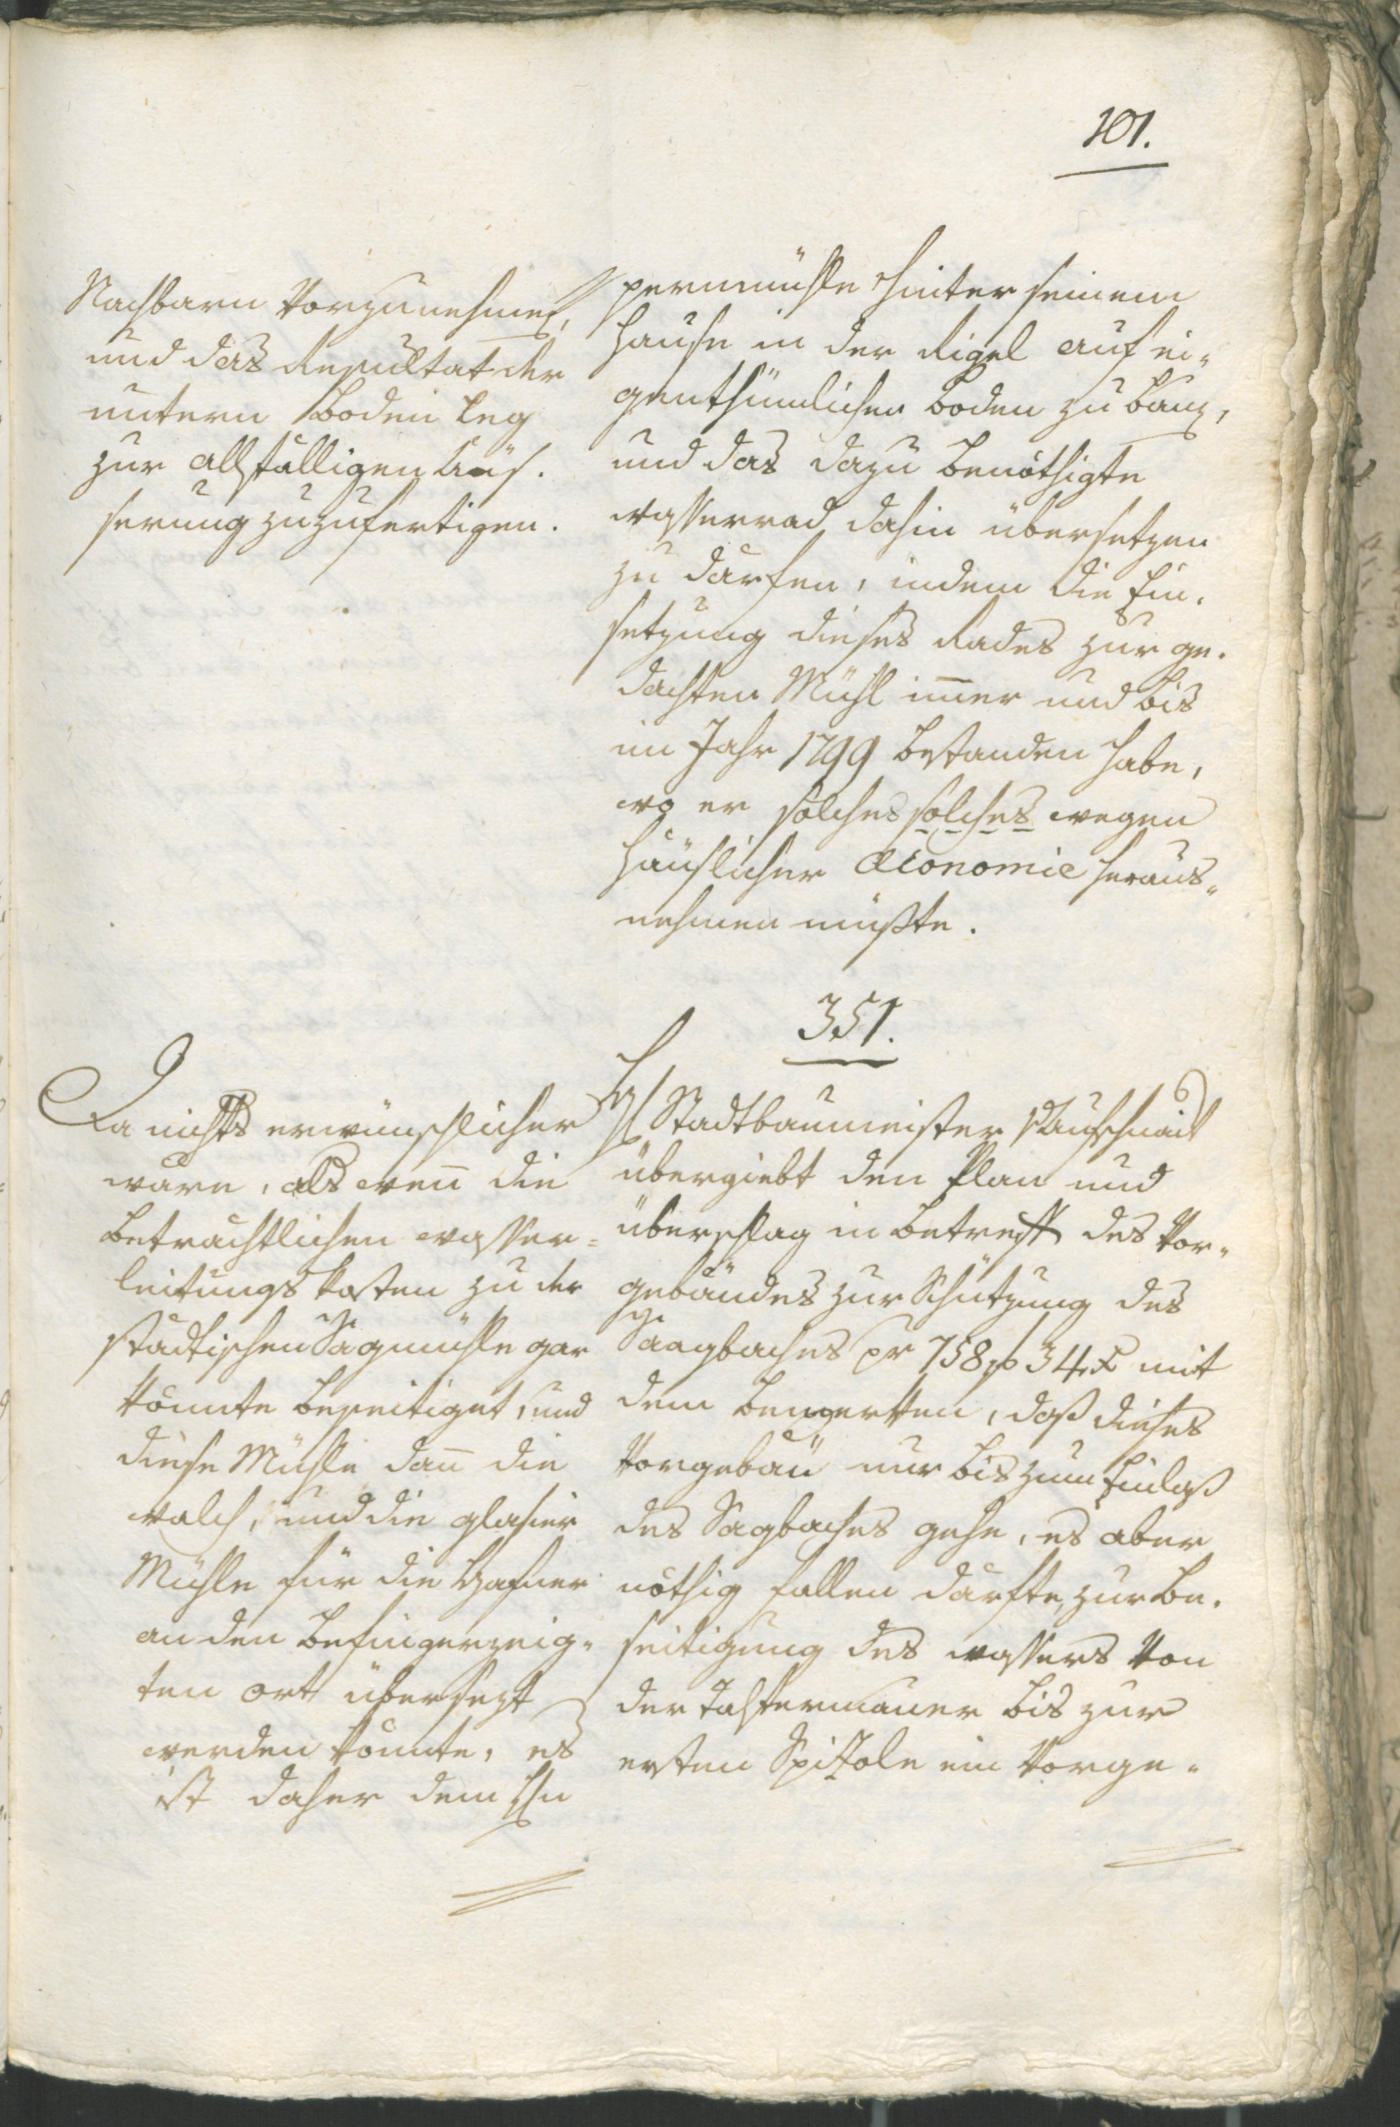 101.
Nachbarn vorzunehmen,
und das Resultat der
untern Boden Leg
zur allfälligen Aüs-
serung zuzufertigen.
permühle hinter seinem
Hause in der Rigel auf ei-
genthümlichen Boden zu bauen,
und das dazu benöthigte
Wasserrad dahin übersetzen
zu därfen, indem die Ein-
setzung dieses Rades zur ge-
dachten Mühl immer und bis
im Jahr 1799 bestanden habe,
wo er solches solches wegen
häuslicher Œconomie heraus-
nehmen müßte.
351.
Da nichts erwünschlicher
wäre, als wenn die
beträchtlichen Wasser-
leitungs kosten zu der
städtischen Sägmühle gar
könnte beseitiget, und
diese Mühle dann die
Walch, und die glasier
Mühle für die Hafner
an den befingerzeig-
ten Ort übersezt
werden könnte, es
ist daher dem Hrn
Hr Stadtbaumeister
übergiebt den Plan und
überschlag in betreff des Vor-
gebäudes zur Schützung des
Saagbaches pr 758 f 34 x mit
dem bemerken, daß dieses
Vorgebäu nur bis zum Einlaß
des Sagbaches gehe, es aber
nöthig fallen därfte, zur Be-
seitigung des Wassers von
der mauer bis zur
ersten ein Vorge-